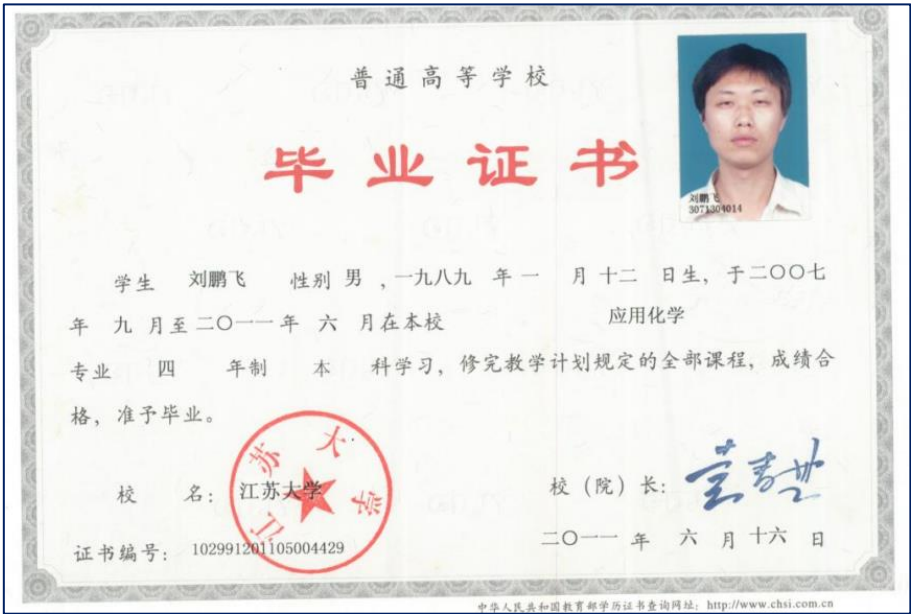 普通高等学校
毕业证书
刘鹏飞
3071304014
学生 刘鹏飞 性别 男 ，一九八九 年 一 月 十二 日生，于二〇〇七
年 九 月至二〇一一年 六 月在本校 应用化学
专业 四 年制 本 科学习，修完教学计划规定的全部课程，成绩合
格，准予毕业。
江苏大学
校 名：江苏大学 校（院）长：
证书编号：102991201105004429 二〇一一 年 六 月 十六 日
中华人民共和国教育部学历证书查询网址：http://www.chsi.com.cn